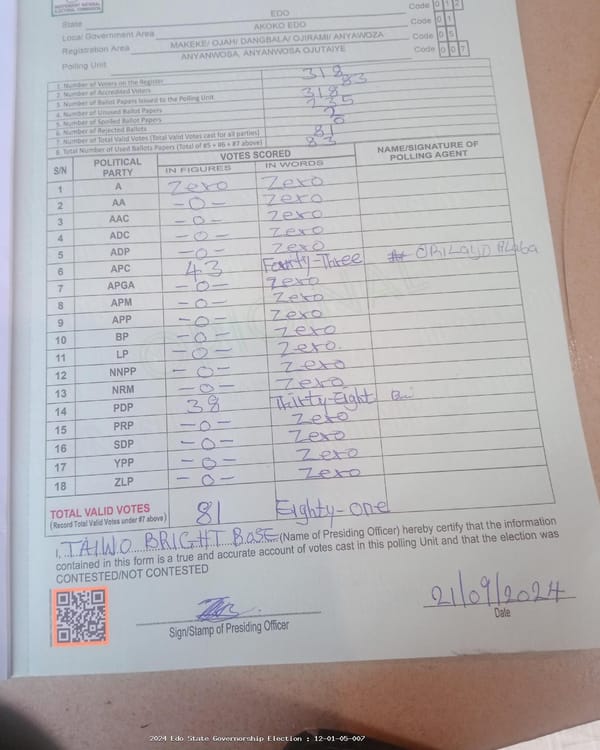 INDEPENDENT NATIONAL ELECTORAL COMMISSION
State EDO Code 0 1 2
Local Government Area AKOKO EDO Code 0 1
Registration Area MAKEKE/ OJAH/ DANGBALA/ OJIRAMI/ ANYAWOZA Code 0 5
Polling Unit ANYANWOSA, ANYANWOSA OJUTAIYE Code 0 0 7
1. Number of Voters on the Register 318
2. Number of Accredited Voters 83
3. Number of Ballot Papers Issued to the Polling Unit 318
4. Number of Unused Ballot Papers 235
5. Number of Spoiled Ballot Papers 2
6. Number of Rejected Ballots 0
7. Number of Total Valid Votes (Total Valid Votes cast for all parties) 81
8. Total Number of Used Ballots Papers (Total of #5 + #6 + #7 above) 83
S/N POLITICAL PARTY VOTES SCORED NAME/SIGNATURE OF POLLING AGENT
IN FIGURES IN WORDS
1 A Zero Zero
2 AA -0- Zero
3 AAC -0- Zero
4 ADC -0- Zero
5 ADP -0- Zero
6 APC 43 Forty-Three
7 APGA -0- Zero
8 APM -0- Zero
9 APP -0- Zero
10 BP -0- Zero
11 LP -0- Zero.
12 NNPP -0- Zero
13 NRM -0- Zero
14 PDP 38 Thirty-Eight
15 PRP -0- Zero
16 SDP -0- Zero
17 YPP -0- Zero
18 ZLP -0- Zero
TOTAL VALID VOTES 81 Eighty-one
(Record Total Valid Votes under #7 above)
I, TAIWO BRIGHT BASE (Name of Presiding Officer) hereby certify that the information
contained in this form is a true and accurate account of votes cast in this polling Unit and that the election was
CONTESTED/NOT CONTESTED
21/09/2024
Sign/Stamp of Presiding Officer Date
2024 Edo State Governorship Election : 12-01-05-007